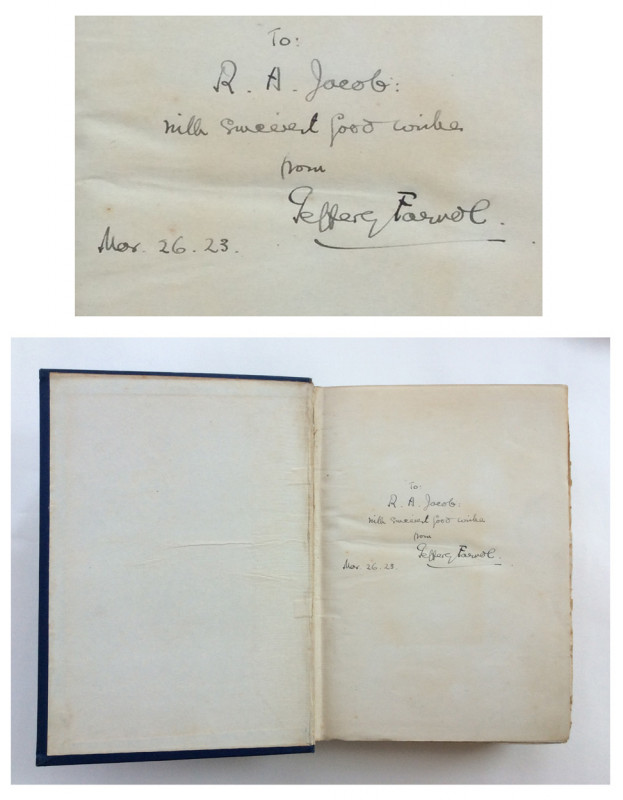 To:
R. A. Jacob:
with sincerest Good wishes
from
Jeffery Farnol.
Mar. 26. 23.
To:
R. A. Jacob:
with sincerest Good wishes
from
Jeffery Farnol.
Mar. 26. 23.